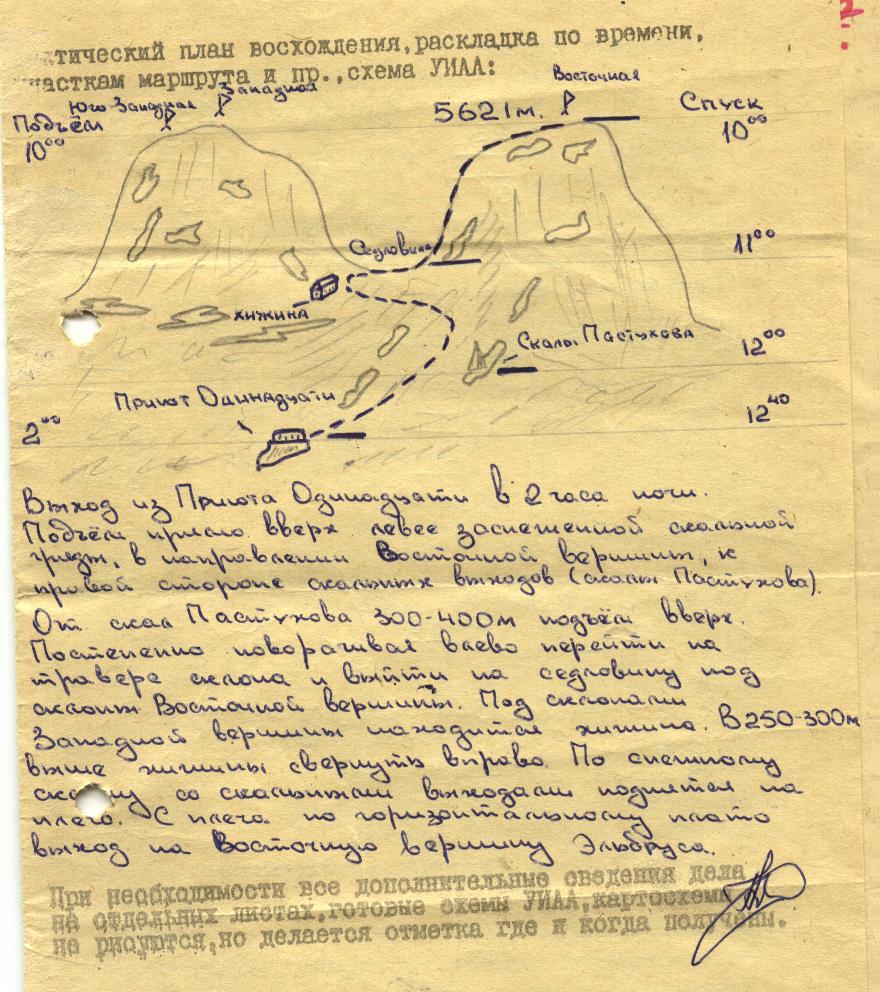 тический план восхождения,раскладка по времени,
участкам маршрута и пр.,схема УИАА:
Юго-Западная Западная Восточная
Подъём 5621м. Спуск
10⁰⁰ 10⁰⁰
Седловина 11⁰⁰
хижина
Скалы Пастухова 12⁰⁰
Приют Одинадцати
2⁰⁰ 12⁴⁰
Выход из Приюта Одинадцати в 2 часа ночи.
Подъём прямо вверх левее заснеженной скальной
гряды, в направлении Восточной вершины, к
правой стороне скальных выходов (скалы Пастухова).
От скал Пастухова 300-400м подъём вверх.
Постепенно поворачивая влево перейти на
траверс склона и выйти на седловину под
склоны Восточной вершины. Под склонами
Западной вершины находится хижина. В 250-300м
выше хижины свернуть вправо. По снежному
склону со скальными выходами поднятся на
плечо. С плеча по горизонтальному плато
выход на Восточную вершину Эльбруса.
При необходимости все дополнительные сведения дела
на отдельных листах,готовые схемы УИАА,картосхемы
не рисуются,но делается отметка где и когда получены.